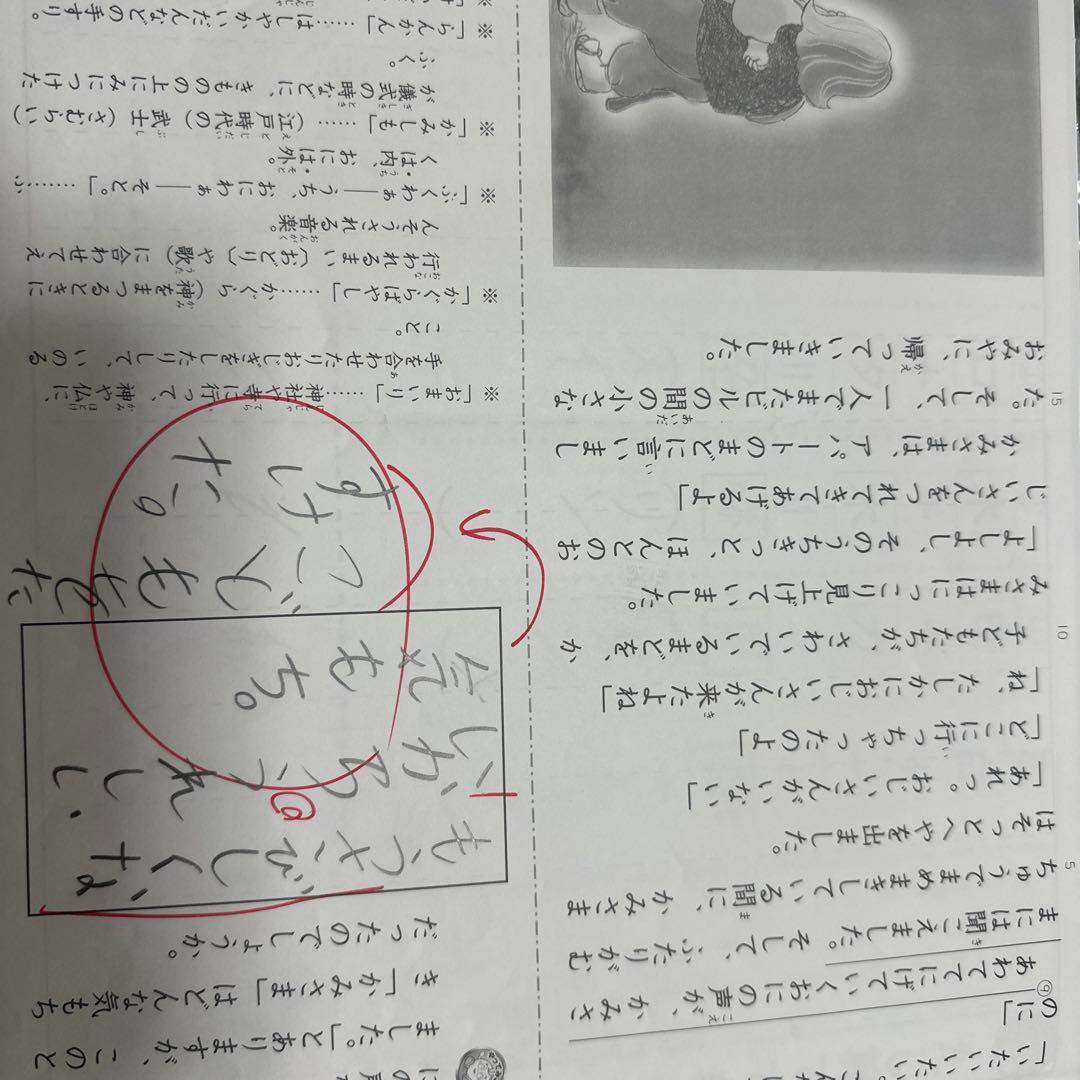 「いたい、いたい。こんなに
のに」
⑨あわててにげていくおにの声が、かみさ
まには聞こえました。そして、ふたりがむ
ちゅうでまめまきしている間に、かみさま
はそっとへやを出ました。
「あれっ。おじいさんがいない」
「どこに行っちゃったのよ」
「ね、たしかにおじいさんが来たよね」
子どもたちが、さわいでいるまどを、か
みさまはにっこり見上げていました。
「よしよし、そのうちきっと、ほんとのお
じいさんをつれてきてあげるよ」
かみさまは、アパートのまどに言いまし
た。そして、一人でまたビルの間の小さな
おみやに、帰っていきました。
5
10
15
にの声が
ました。」とありますが、このと
き「かみさま」はどんな気もち
だったのでしょうか。
もうさびしくな
いからうれしい
気もち。
※「おまいり」……神社や寺に行って、神や仏に、
手を合わせたりおじぎをしたりして、いのる
こと。
※「かぐらばやし」……かぐら（神をまつるときに
行われるまい（おどり）や歌）に合わせてえ
んそうされる音楽。
※「ふくわぁ――うち、おにわぁ――そと。」……ふ
くは内、おには外。
※「かみしも」……（江戸時代の）武士（さむらい）
が儀式の時などに、きものの上にみにつけた
ふく。
※「らんかん」……はしやかいだんなどの手すり。